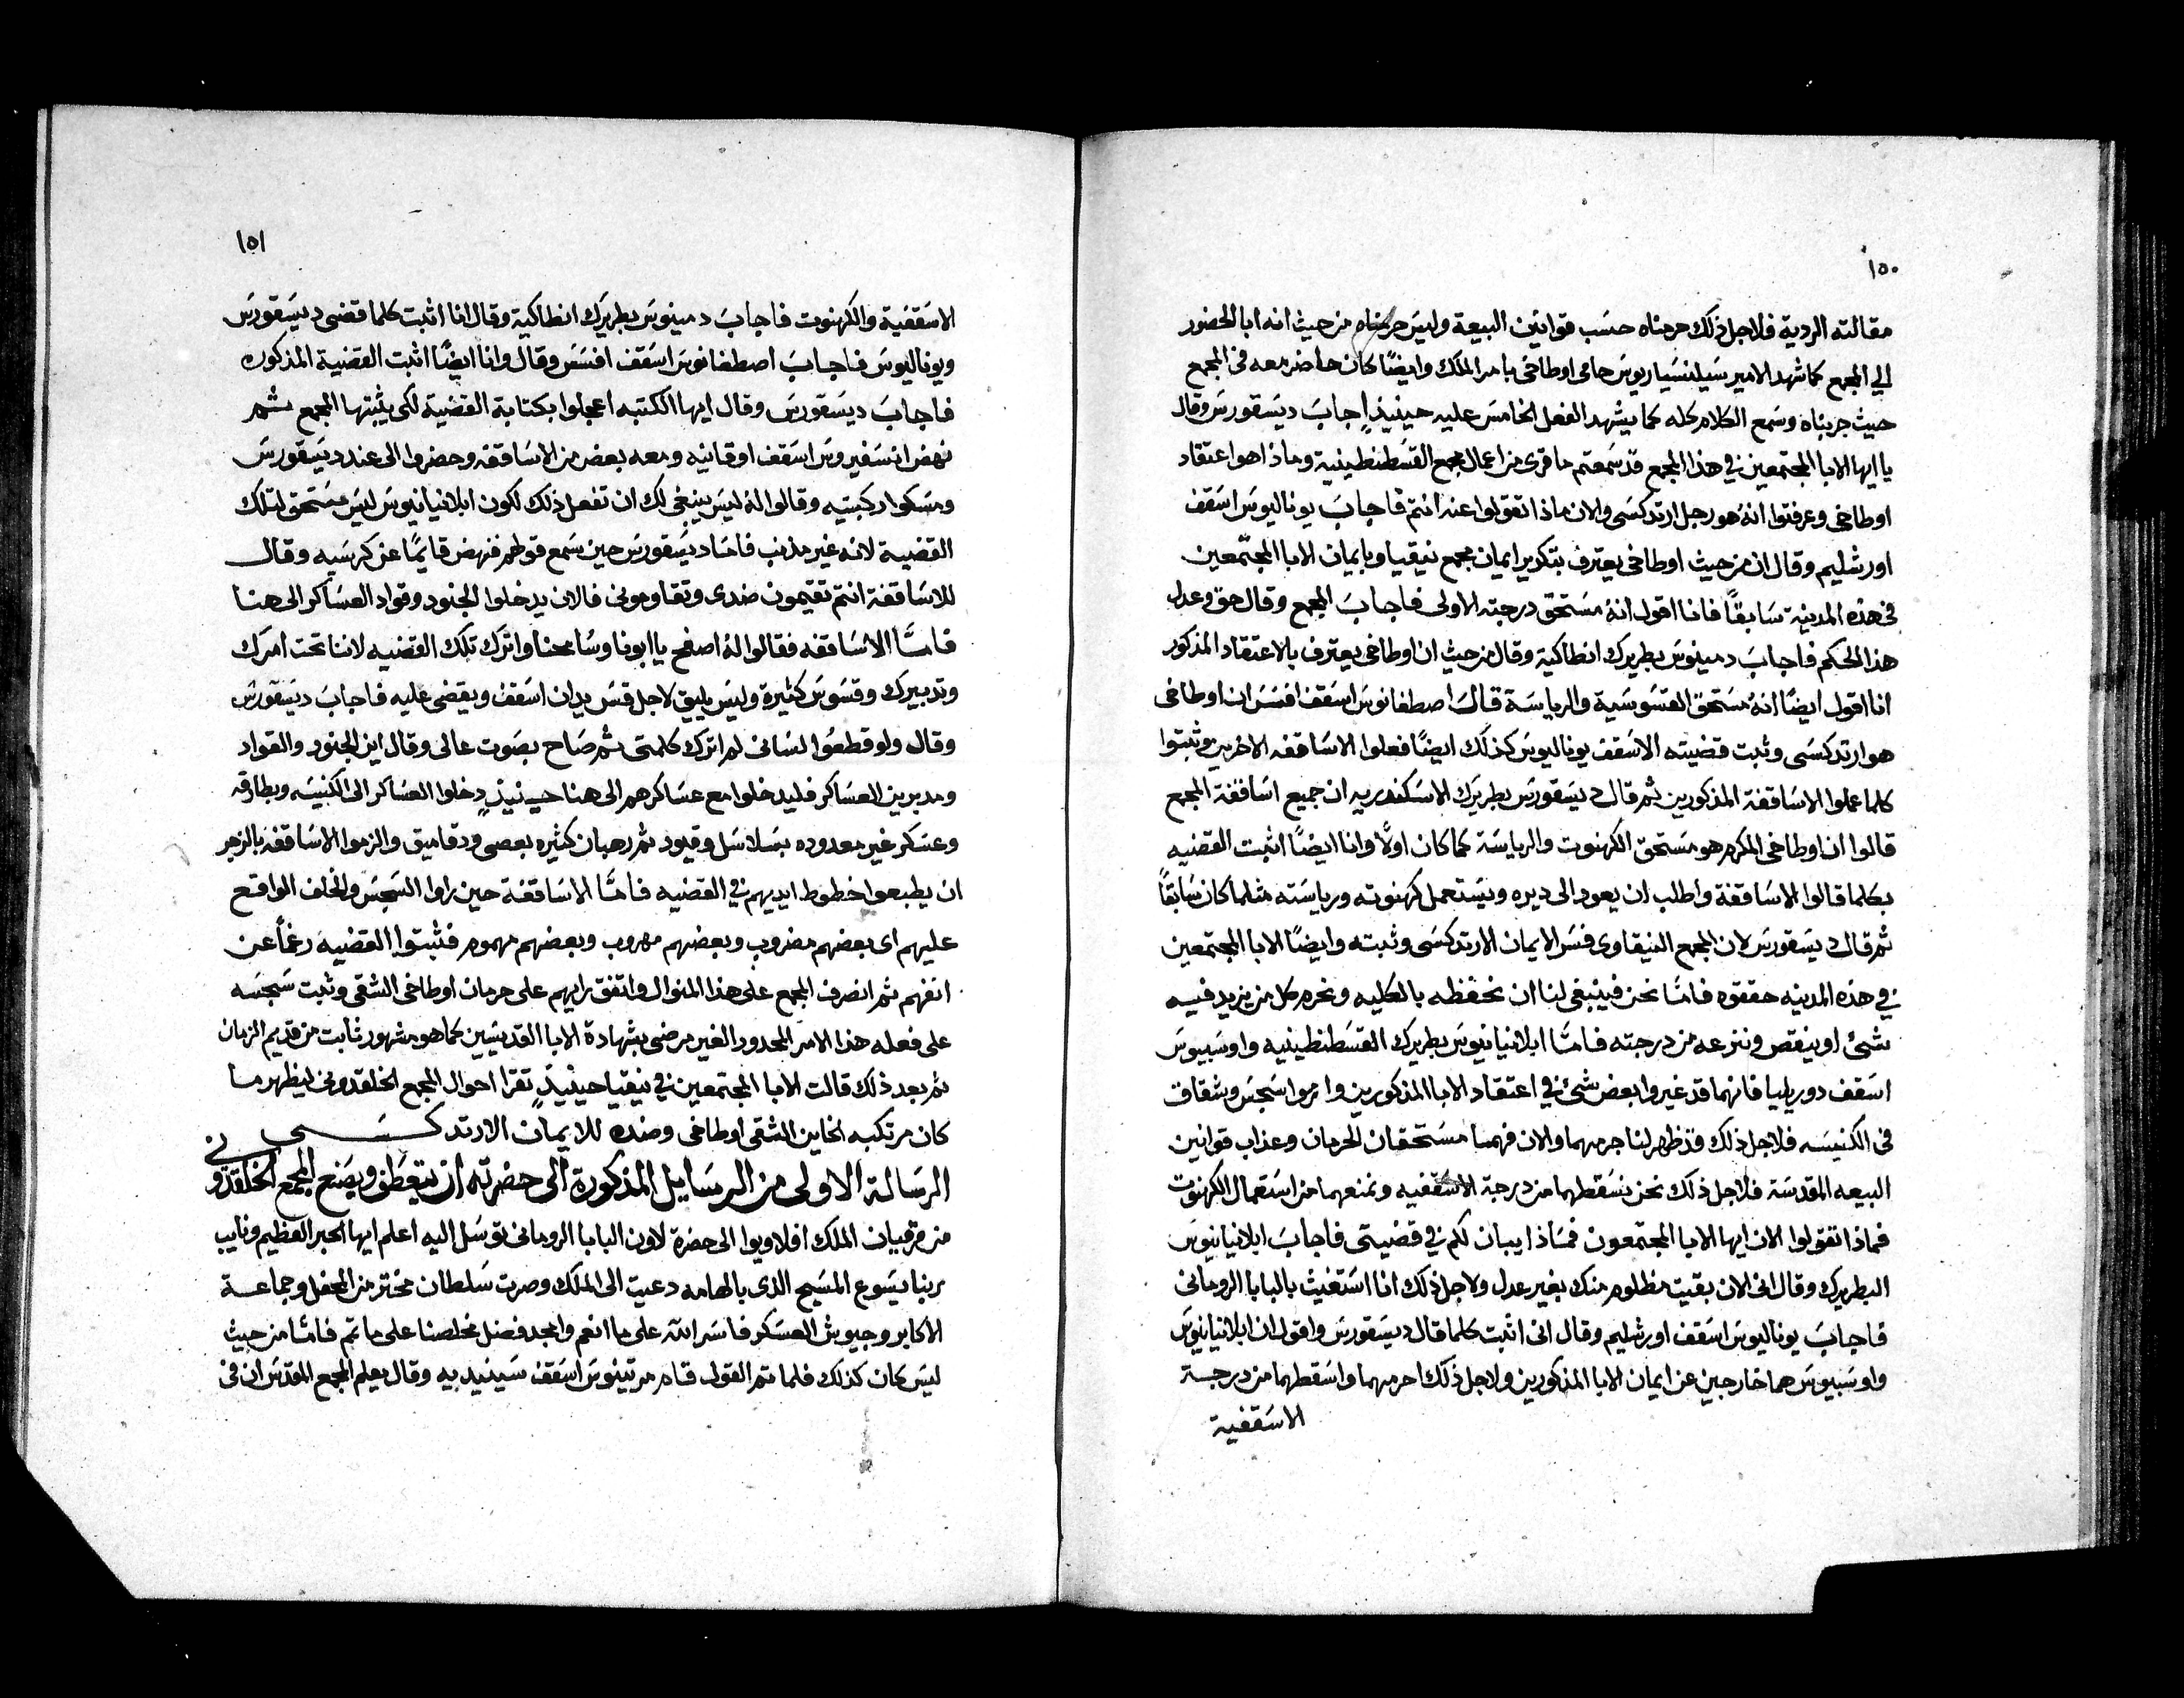 ١٥٠
مقالته الردية فلاجل ذلك حرمناه حسب قوانين البيعة وليس حرمناه من حيث انه ابا الحضور
الي المجمع كما شهد الامير سيلنسياريوس حامى اوطاخى بامر الملك وايضًا كان حاضر معه فى المجمع
حيث جربناه وسمع الكلام كله كما يشهد الفعل الخامس عليه حينيذٍ اجاب ديسقورس وقال
يا ايها الابا المجتمعين في هذا المجمع قد سمعتم ما قرى من اعمال مجمع القسطنطينية وماذا هو اعتقاد
اوطاخى وعرفتوا انهُ هو رجل ارتدكسى والان ماذا تقولوا عنه انتم فاجاب يوناليوس اسقف
اورشليم وقال ان من حيث اوطاخى يعترف بتكرير ايمان مجمع نيقيا وبايمان الابا المجتمعين
فى هذه المدينة سابقًا فانا اقول انهُ مستحق درجته الاولى فاجاب المجمع وقال حق وعدل
هذا الحكم فاجاب دمينوس بطريرك انطاكية وقال من حيث ان اوطاخى يعترف بالاعتقاد المذكور
انا اقول ايضًا انهُ مستحق القسوسية والرياسة قال اصطفانوس اسقف افسس ان اوطاخى
هو ارتدكسى وثبت قضيته الاسقف يوناليوس كذلك ايضًا فعلوا الاساقفه الاخرين وثبتوا
كلما عملوا الاساقفة المذكورين ثم قال ديسقورس بطريرك الاسكندريه ان جميع اساقفة المجمع
قالوا ان اوطاخى المكرم هو مستحق الكهنوت والرياسة كما كان اولًا وانا ايضًا اثبت القضيه
بكلما قالوا الاساقفة واطلب ان يعود الى ديره ويستعمل كهنوته ورياسته مثلما كان سابقًا
ثم قال ديسقورس لان المجمع النيقاوى فسر الايمان الارتدكسى وثبته وايضًا الابا المجتمعين
في هذه المدينه حققوه فامّا نحن فينبغى لنا ان نحفظه بالكليه ونحرم كل من يزيد فيه
شئ او ينقص وننزعه من درجته فامّا ابلانيانوس بطريرك القسطنطينيه واوسبيوس
اسقف دوريليا فانهما قد غيروا بعض شئ في اعتقاد الابا المذكورين وارموا سجس وشقاق
فى الكنيسه فلاجل ذلك قد ظهر لنا جرمهما والان فهما مستحقان الحرمان وعذاب قوانين
البيعه المقدسة فلاجل ذلك نحن نسقطهما من درجة الاسقفيه ونمنعهما من استعمال الكهنوت
فماذا تقولوا الان ايها الابا المجتمعون فماذا يبان لكم في قضيتى فاجاب ابلانيانوس
البطريرك وقال انى الان بقيت مظلوم منك بغير عدل ولاجل ذلك انا استغيث بالبابا الرومانى
فاجاب يوناليوس اسقف اورشليم وقال انى اثبت كلما قال ديسقورس واقول ان ابلانيانوس
واوسبيوس هما خارجين عن ايمان الابا المذكورين ولاجل ذلك احرمهما واسقطهما من درجة
الاسقفية
١٥١
الاسقفية والكهنوت فاجاب دمينوس بطريرك انطاكية وقال انا اثبت كلما قضى ديسقورس
ويوناليوس فاجاب اصطفانوس اسقف افسس وقال وانا ايضًا اثبت القضية المذكوره
فاجاب ديسقورس وقال ايها الكتبه اعجلوا بكتابة القضية لكى يثبتها المجمع ثم
نهض انسفيروس اسقف اوقانيه ومعه بعض من الاساقفه وحضروا الى عند ديسقورس
ومسكوا ركبتيه وقالوا لهُ ليس ينبغى لك ان تفعل ذلك لكون ابلانيانوس ليس مستحق لتلك
القضية لانه غير مذنب فامّا ديسقورس حين سمع قولهم فنهض قايمًا عن كرسيه وقال
للاساقفة انتم تقيمون ضدى وتقاومونى فالان يدخلوا الجنود وقواد العساكر الى هنا
فامّا الاساقفه فقالوا لهُ اصفح يا ابونا وسامحنا واترك تلك القضيه لاننا تحت امرك
وتدبيرك وقسوس كثيرة وليس يليق لاجل قس يدان اسقف ويقضى عليه فاجاب ديسقورس
وقال ولو قطعوا لسانى لم اترك كلمتى ثم صاح بصوت عالى وقال اين الجنود والقواد
ومدبرين العساكر فليدخلوا مع عساكرهم الى هنا حينيذٍ دخلوا العساكر الى الكنيسه وبطارقه
وعسكر غير معدوده بسلاسل وقيود ثم رهبان كثيره بعصى ودقاميق والزموا الاساقفه بالزجر
ان يطبعوا خطوط ايديهم في القضيه فامّا الاساقفة حين راوا السجس والخلف الواقع
عليهم اى بعضهم مضروب وبعضهم مهروب وبعضهم مهموم فثبتوا القضيه رغمًا عن
انفهم ثم انصرف المجمع على هذا المنوال واتفق رايهم على حرمان اوطاخى الشقى وثبت سجسه
على فعله هذا الامر المحدور الغير مرضى بشهادة الابا القديسين كما هو مشهور ثابت من قديم الزمان
ثم بعد ذلك قالت الابا المجتمعين في نيقيا حينيذٍ تقرا احوال المجمع الخلقدونى ليظهر ما
كان مرتكبه الخاين الشقى اوطاخى وضده للايمان الارتدكسى
الرسالة الاولى من الرسايل المذكورة الى حضرته ان يتعطف ويصنع المجمع الخلقدونى
من مرقيان الملك افلاويوا الى حضرة لاون البابا الرومانى توسل اليه اعلم ايها الحبر العظيم ونايب
ربنا يسوع المسيح الذى بالهامه دعيت الى الملك وصرت سلطان مختر من المحفل وجماعة
الاكابر وجيوش العسكر فاسر الله على ما انعم وامجد فضل مخلصنا على ما تم فامّا من حيث
ليس كان كذلك فلما تم القول قام مرتينوس اسقف سينيدبيه وقال يعلم المجمع المقدس ان فى